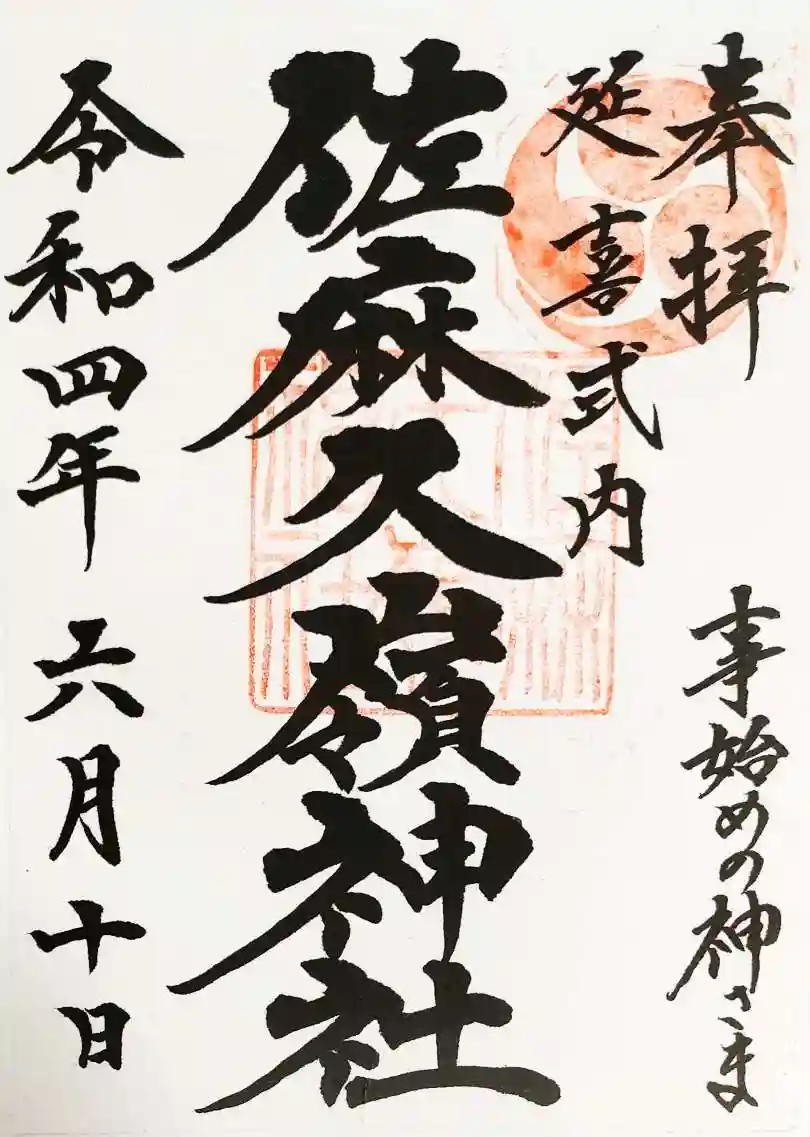 奉拝
延喜式内
事始めの神さま
佐麻久嶺神社
令和四年 六月十日